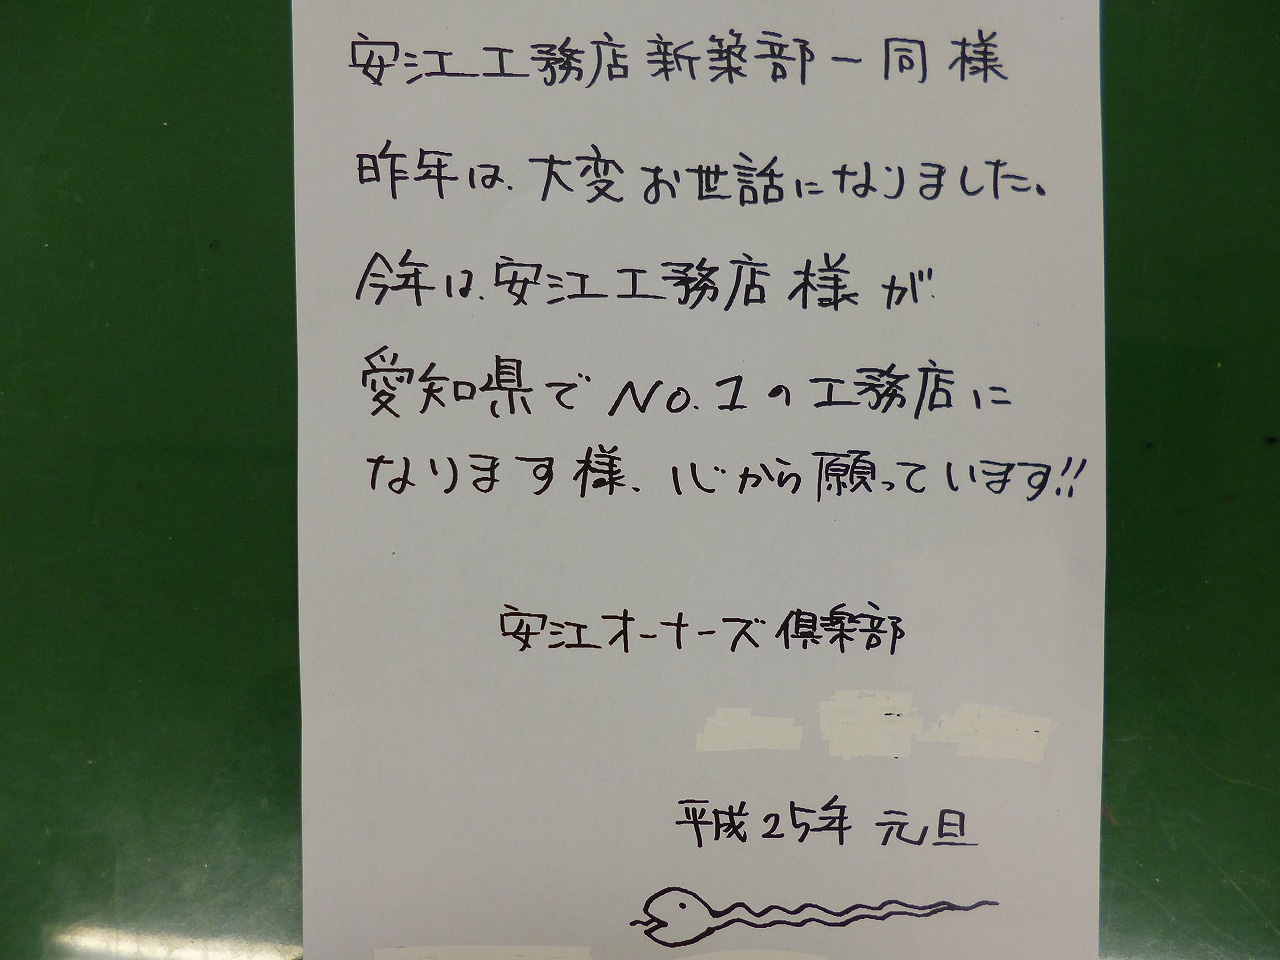 安江工務店新築部一同様
昨年は、大変お世話になりました。
今年は、安江工務店様が
愛知県でNo.1の工務店に
なります様、心から願っています!!
安江オーナーズ倶楽部
平成25年 元旦